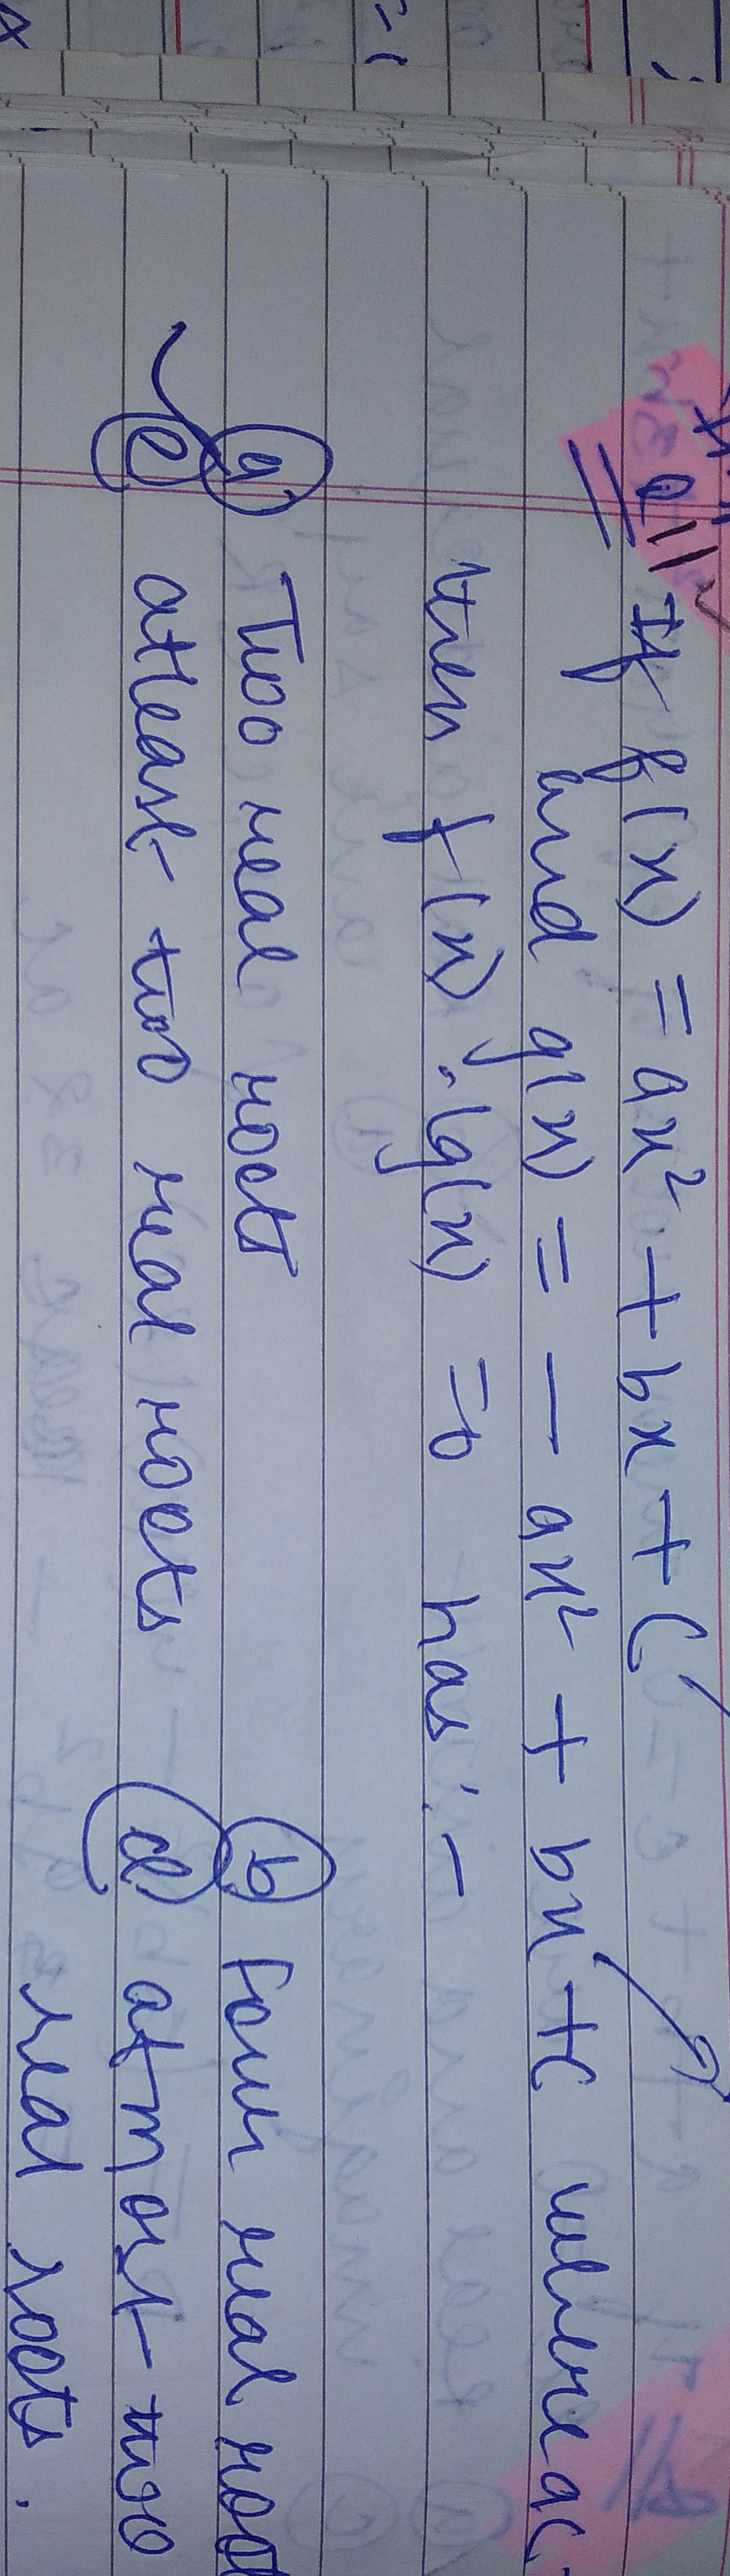 Q11 If f(x) = ax² + bx + c
and g(x) = - ax² + bx + c where ac
then f(x) . g(x) = 0 has :-
(a) Two real roots (b) Four real root
(c) atleast two real roots (d) atmost two
real roots.